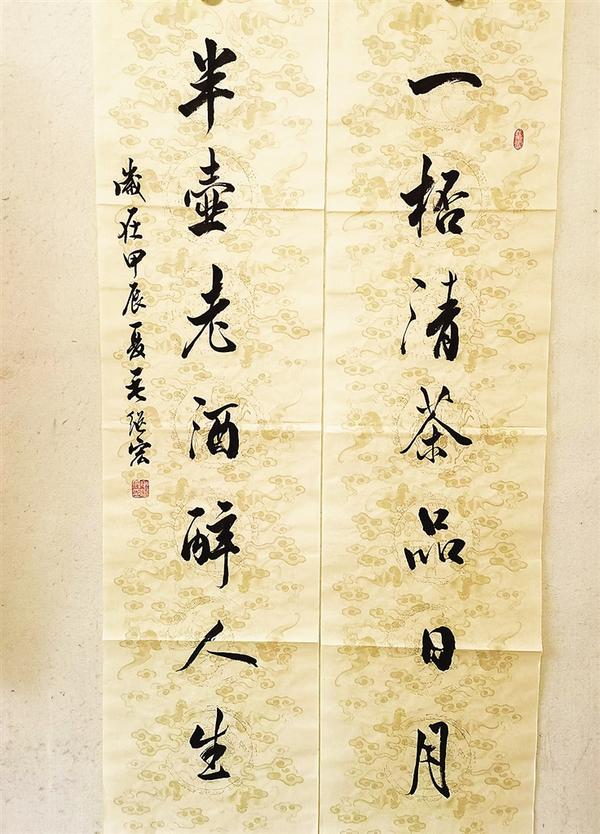 一桮清茶品日月
半壺老酒醉人生
歲在甲辰夏吴继宏